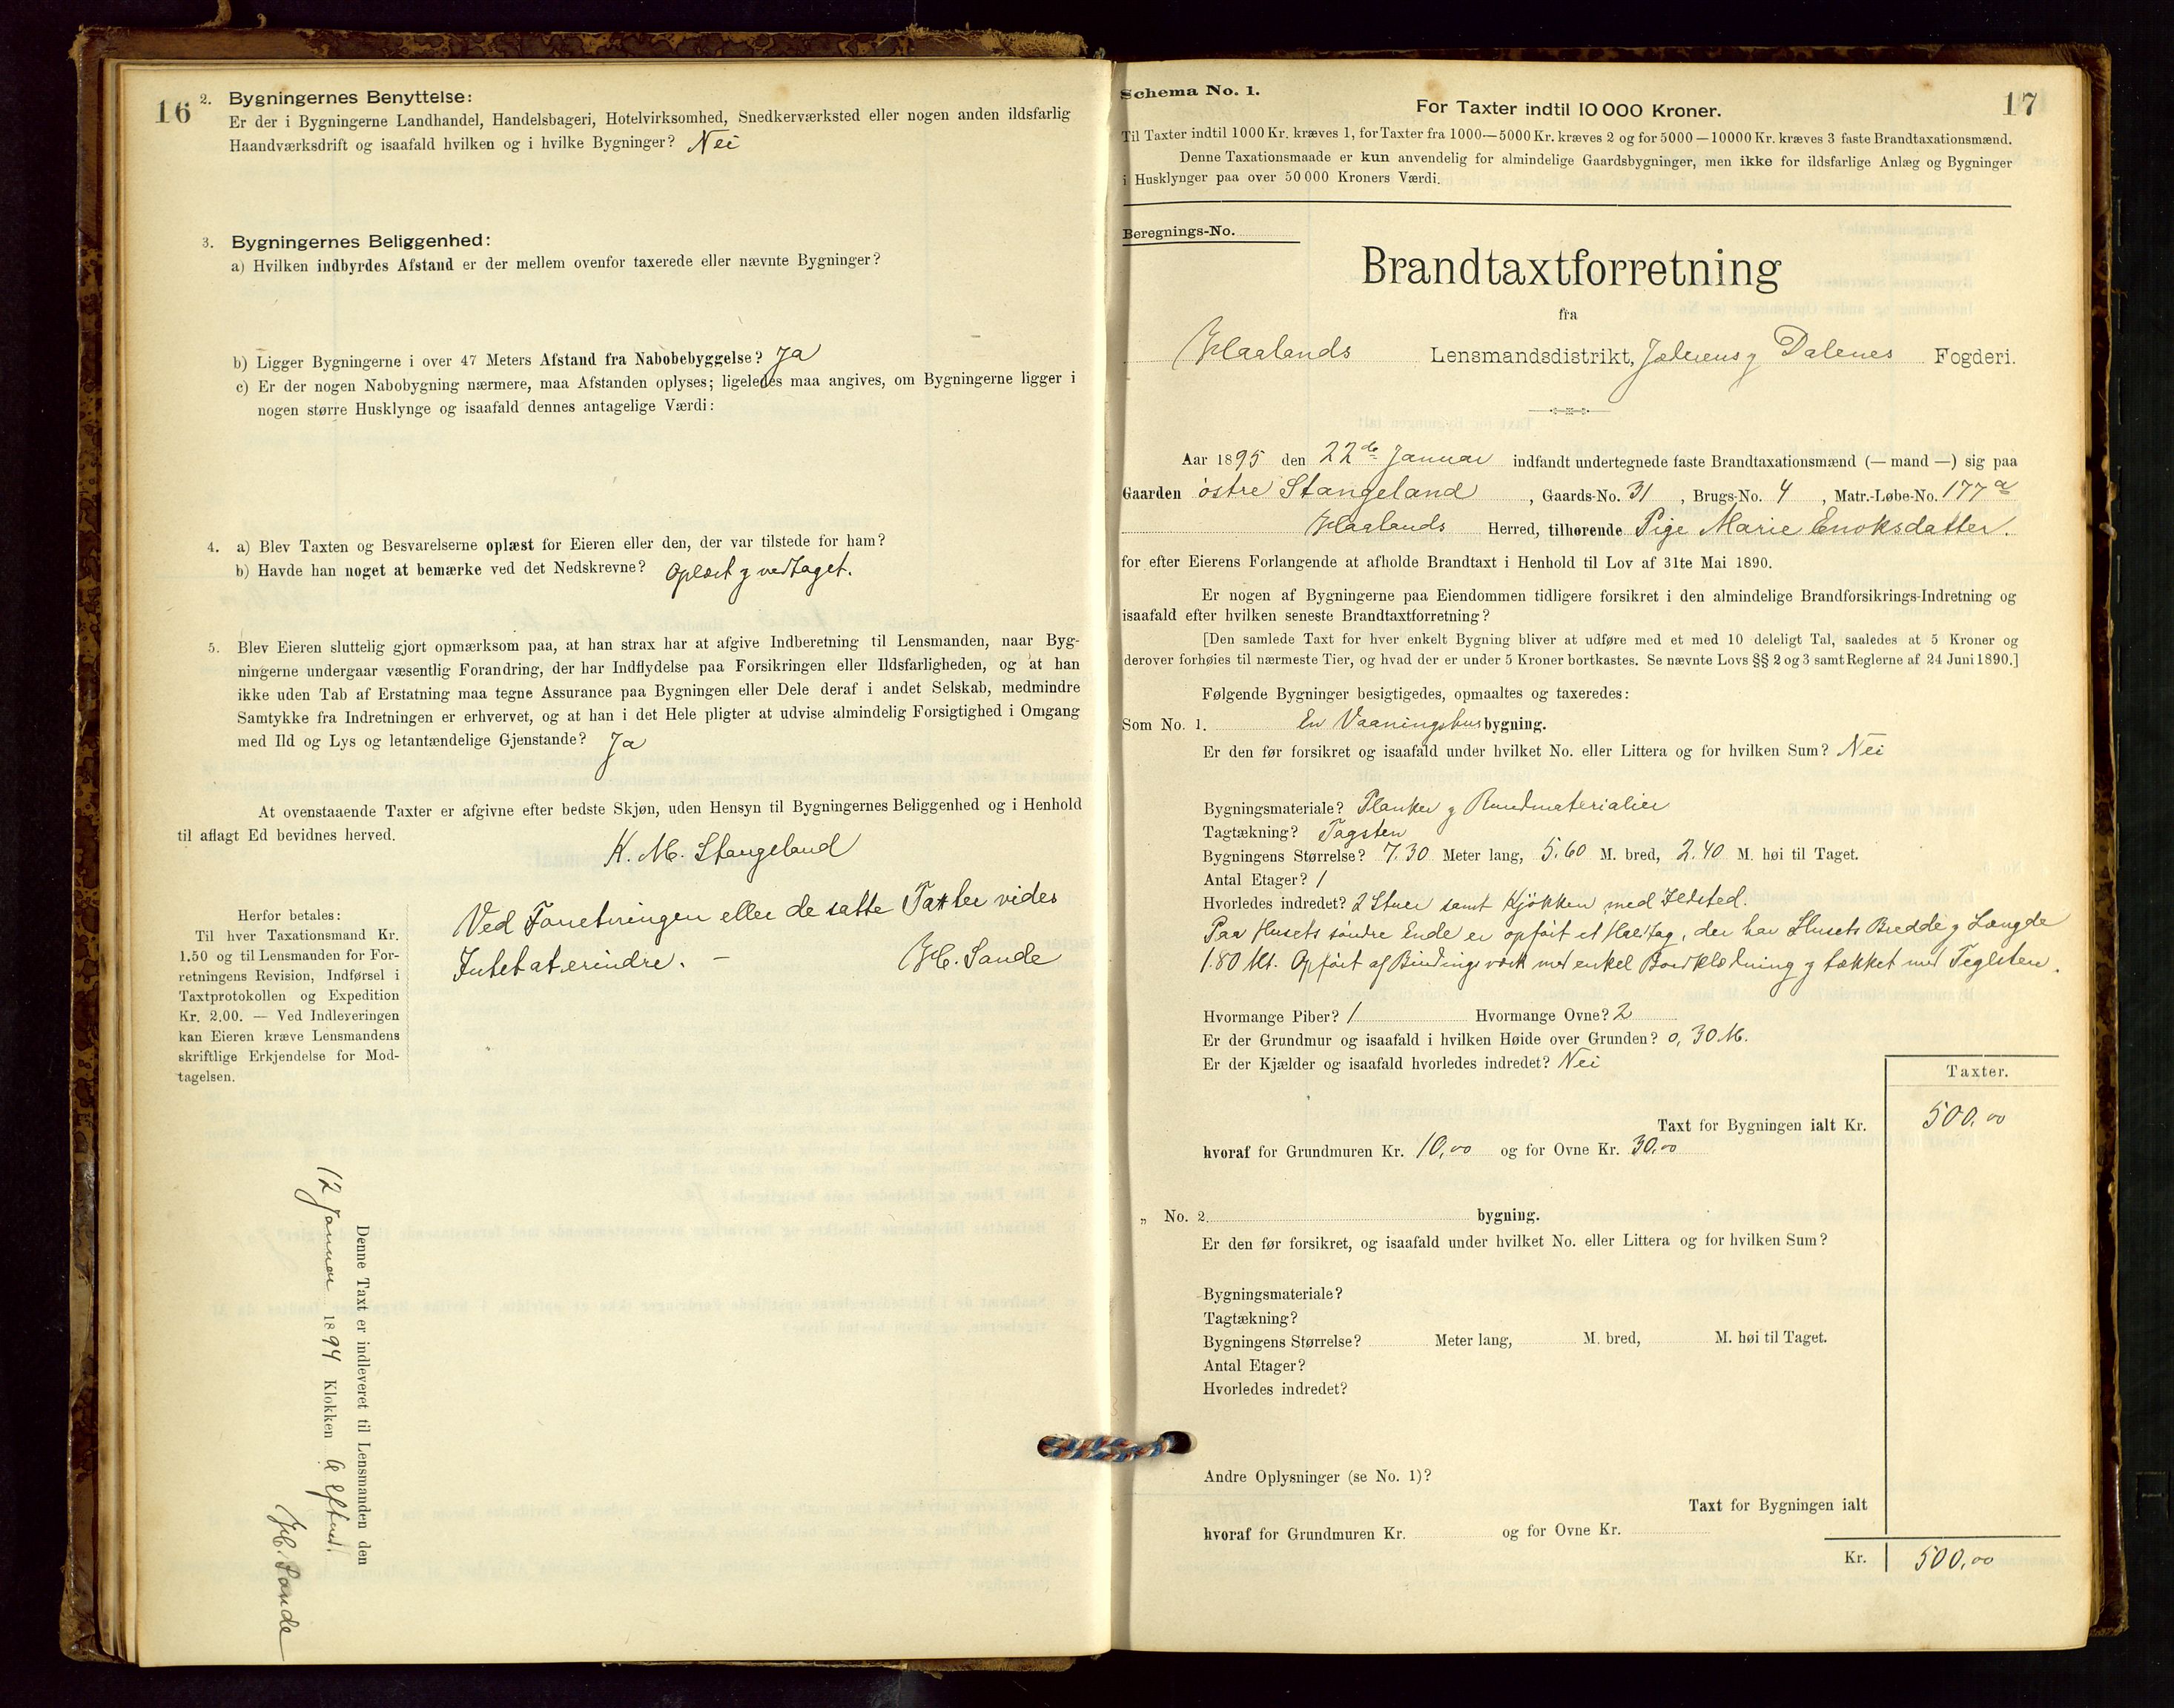 16
2. Bygningernes Benyttelse:
Er der i Bygningerne Landhandel, Handelsbageri, Hotelvirksomhed, Snedkerværksted eller nogen anden ildsfarlig
Haandværksdrift og isaafald hvilken og i hvilke Bygninger? Nei
3. Bygningernes Beliggenhed:
a) Hvilken indbyrdes Afstand er der mellem ovenfor taxerede eller nævnte Bygninger?
b) Ligger Bygningerne i over 47 Meters Afstand fra Nabobebyggelse? Ja
c) Er der nogen Nabobygning nærmere, maa Afstanden oplyses; ligeledes maa angives, om Bygningerne ligger i
nogen større Husklynge og isaafald dennes antagelige Værdi:
4. a) Blev Taxten og Besvarelserne oplæst for Eieren eller den, der var tilstede for ham?
b) Havde han noget at bemærke ved det Nedskrevne? Oplæst g vedtaget.
5. Blev Eieren sluttelig gjort opmærksom paa, at han strax har at afgive Indberetning til Lensmanden, naar Byg-
ningerne undergaar væsentlig Forandring, der har Indflydelse paa Forsikringen eller Ildsfarligheden, og at han
ikke uden Tab af Erstatning maa tegne Assurance paa Bygningen eller Dele deraf i andet Selskab, medmindre
Samtykke fra Indretningen er erhvervet, og at han i det Hele pligter at udvise almindelig Forsigtighed i Omgang
med Ild og Lys og letantændelige Gjenstande? Ja
At ovenstaaende Taxter er afgivne efter bedste Skjøn, uden Hensyn til Bygningernes Beliggenhed og i Henhold
til aflagt Ed bevidnes herved.
K. M. Stangeland
Ved Forretningen eller de satte Taxter vides
Intet at erindre. –
H. Sande
Herfor betales:
Til hver Taxationsmand Kr.
1.50 og til Lensmanden for For-
retningens Revision, Indførsel i
Taxtprotokollen og Expedition
Kr. 2.00. — Ved Indleveringen
kan Eieren kræve Lensmandens
skriftlige Erkjendelse for Mod-
tagelsen.
Denne Taxt er indleveret til Lensmanden den
12 Januar 1894 Klokken 6 Eftm.
H. Sande
Schema No. 1.
17
For Taxter indtil 10 000 Kroner.
Til Taxter indtil 1000 Kr. kræves 1, for Taxter fra 1000—5000 Kr. kræves 2 og for 5000—10000 Kr. kræves 3 faste Brandtaxationsmænd.
Denne Taxationsmaade er kun anvendelig for almindelige Gaardsbygninger, men ikke for ildsfarlige Anlæg og Bygninger
i Husklynger paa over 50 000 Kroners Værdi.
Beregnings-No.
Brandtaxtforretning
fra
Haalands Lensmandsdistrikt, Jæderens g Dalenes Fogderi.
Aar 1895 den 22de Januar indfandt undertegnede faste Brandtaxationsmænd (— mand —) sig paa
Gaarden østre Stangeland, Gaards-No. 31, Brugs-No. 4, Matr.-Løbe-No. 177 a
Haalands Herred, tilhørende Pige Marie Enoksdatter.
for efter Eierens Forlangende at afholde Brandtaxt i Henhold til Lov af 31te Mai 1890.
Er nogen af Bygningerne paa Eiendommen tidligere forsikret i den almindelige Brandforsikrings-Indretning og
isaafald efter hvilken seneste Brandtaxtforretning?
[Den samlede Taxt for hver enkelt Bygning bliver at udføre med et med 10 deleligt Tal, saaledes at 5 Kroner og
derover forhøies til nærmeste Tier, og hvad der er under 5 Kroner bortkastes. Se nævnte Lovs §§ 2 og 3 samt Reglerne af 24 Juni 1890.]
Følgende Bygninger besigtigedes, opmaaltes og taxeredes:
Som No. 1. En Vaaningshusbygning.
Er den før forsikret og isaafald under hvilket No. eller Littera og for hvilken Sum? Nei
Bygningsmateriale? Planker g Bindmaterialier
Tagtækning? Tagsten
Bygningens Størrelse? 7.30 Meter lang, 5.60 M. bred, 2.40 M. høi til Taget.
Antal Etager? 1
Hvorledes indredet? 2 Stuer samt Kjøkken med Ildsted.
Paa Husets søndre Ende er opført et Halvtag, der har Husets Bredde g Længde
1.80 Mt. Opført af Bindingsværk med enkel Bordklædning g tækket med Teglsten.
Hvormange Piber? 1 Hvormange Ovne? 2
Er der Grundmur og isaafald i hvilken Høide over Grunden? 0,30 M.
Er der Kjælder og isaafald hvorledes indredet? Nei
Taxter.
Taxt for Bygningen ialt Kr. 500,00
hvoraf for Grundmuren Kr. 10,00 og for Ovne Kr. 30,00
„ No. 2. bygning.
Er den før forsikret, og isaafald under hvilket No. eller Littera og for hvilken Sum?
Bygningsmateriale?
Tagtækning?
Bygningens Størrelse? Meter lang, M. bred, M. høi til Taget.
Antal Etager?
Hvorledes indredet?
Andre Oplysninger (se No. 1)?
Taxt for Bygningen ialt
hvoraf for Grundmuren Kr. og for Ovne Kr.
Kr. 500,00